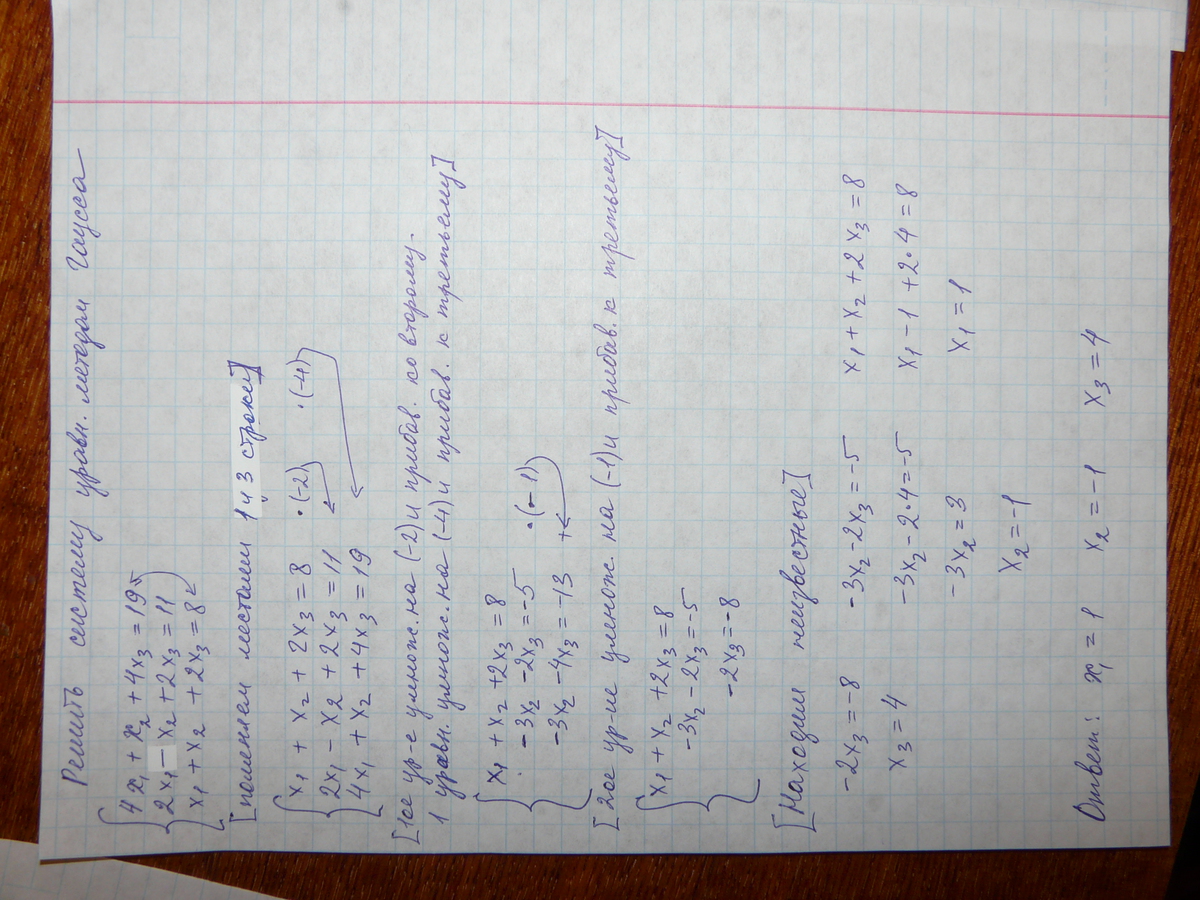 Решить систему уравн. методом Гаусса
4x₁ + x₂ + 4x₃ = 19
2x₁ − x₂ + 2x₃ = 11
x₁ + x₂ + 2x₃ = 8
[поменяем местами 1 и 3 строки]
x₁ + x₂ + 2x₃ = 8 ·(-2) ·(-4)
2x₁ − x₂ + 2x₃ = 11
4x₁ + x₂ + 4x₃ = 19
[1ое ур-е умнож. на (-2) и прибав. ко второму.
1 уравн. умнож. на (-4) и прибав. к третьему]
x₁ + x₂ + 2x₃ = 8
-3x₂ - 2x₃ = -5 ·(-1)
-3x₂ - 4x₃ = -13 +
[2ое ур-ие умнож. на (-1) и прибав. к третьему]
x₁ + x₂ + 2x₃ = 8
-3x₂ - 2x₃ = -5
-2x₃ = -8
[Находим неизвестные]
-2x₃ = -8 -3x₂ - 2x₃ = -5 x₁ + x₂ + 2x₃ = 8
x₃ = 4 -3x₂ - 2·4 = -5 x₁ - 1 + 2·4 = 8
-3x₂ = 3 x₁ = 1
x₂ = -1
Ответ: x₁ = 1 x₂ = -1 x₃ = 4